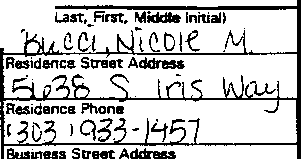 Last, First, Middle Initial)
Bucci, Nicole M.
Residence Street Address
5638 S Iris Way
Residence Phone
(303) 933-1457
Business Street Address